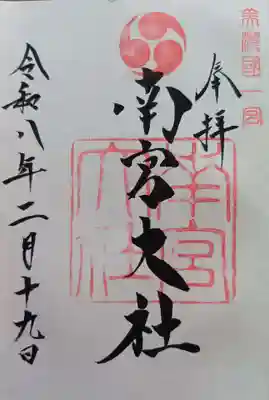 美濃國一宮
奉拝
南宮大社
南宮大社
令和八年二月十九日